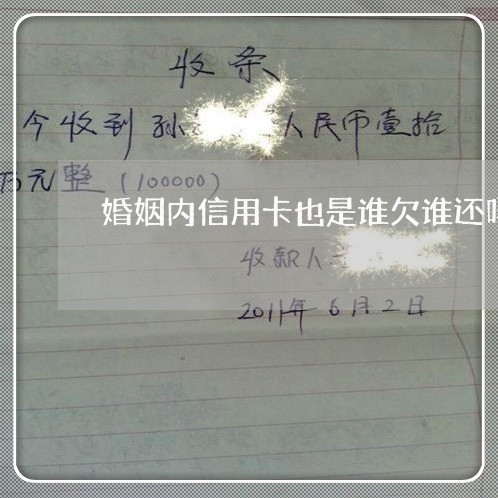 收条
今收到孙 人民币壹拾
万元整（100000）
婚姻内信用卡也是谁欠谁还
收款人
2011年6月2日